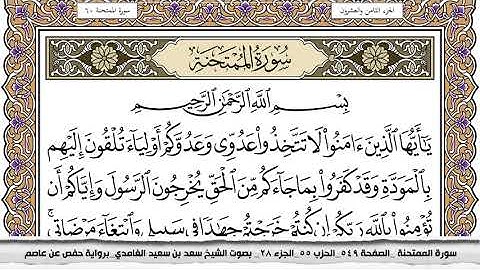 الجزء الثامن والعشرون
سورة الممتحنة ٦٠
سُورَةُ الْمُمْتَحَنَةِ
بِسْمِ اللَّهِ الرَّحْمَٰنِ الرَّحِيمِ
يَٰٓأَيُّهَا الَّذِينَ ءَامَنُوا لَا تَتَّخِذُوا عَدُوِّي وَعَدُوَّكُمْ أَوْلِيَآءَ تُلْقُونَ إِلَيْهِم
بِالْمَوَدَّةِ وَقَدْ كَفَرُوا بِمَا جَآءَكُم مِّنَ الْحَقِّ يُخْرِجُونَ الرَّسُولَ وَإِيَّاكُمْ أَن
تُؤْمِنُوا بِاللَّهِ رَبِّكُمْ إِن كُنتُمْ خَرَجْتُمْ جِهَٰدًا فِي سَبِيلِي وَابْتِغَآءَ مَرْضَاتِي
سورة الممتحنة _الصفحة ٥٤٩_الحزب ٥٥_الجزء ٢٨_ بصوت الشيخ سعد بن سعيد الغامدي_برواية حفص عن عاصم